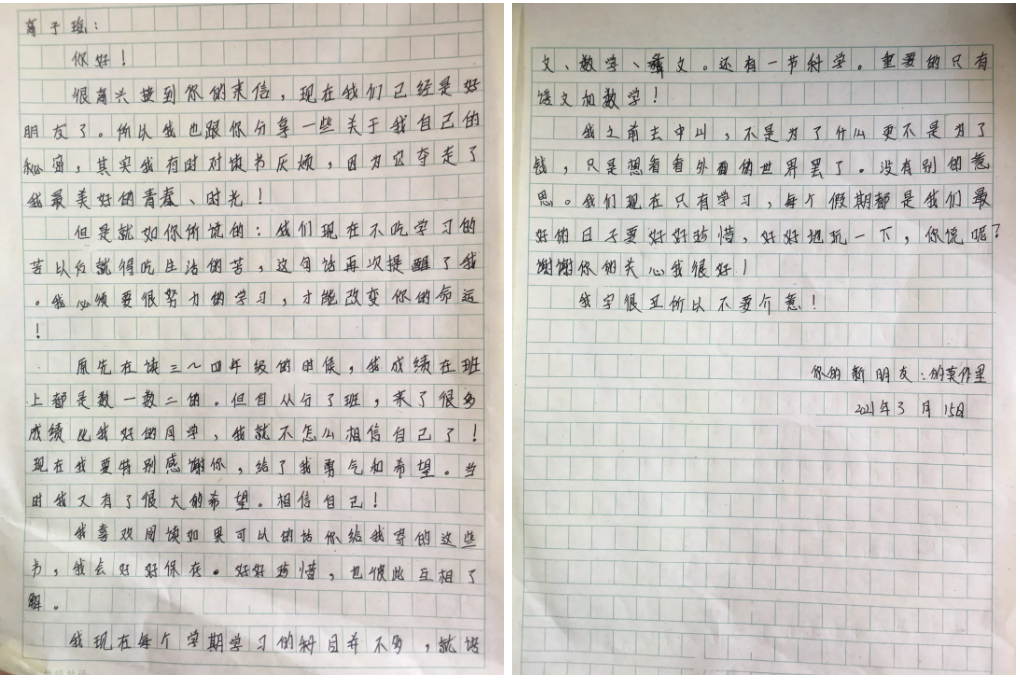 高子瑶：
你好！
很高兴接到你的来信，现在我们已经是好
朋友了。所以我也跟你分享一些关于我自己的
秘密，其实我有时对读书厌烦，因为它夺走了
我最美好的青春、时光！
但是就如你所说的：我们现在不吃学习的
苦以后就得吃生活的苦，这句话再次提醒了我
。我必须要很努力的学习，才能改变你的命运
！
原先在读三～四年级的时候，我成绩在班
上都是数一数二的。但自从分了班，来了很多
成绩比我好的同学，我就不怎么相信自己了！
现在我要特别感谢你，给了我勇气和希望。当
时我又有了很大的希望。相信自己！
我喜欢阅读如果可以的话你给我寄的这些
书，我会好好保存。好好珍惜，也彼此互相了
解。
我现在每个学期学习的科目并不多，就语
文、数学、彝文。还有一节科学。重要的只有
语文和数学！
我之前去中山，不是为了什么更不是为了
钱，只是想看看外面的世界罢了。没有别的意
思。我们现在只有学习，每个假期都是我们最
好的日子要好好珍惜，好好地玩一下，你说呢？
谢谢你的关心我很好！
我字很丑所以不要介意！
你的新朋友：的莫作里
2021年3月15日